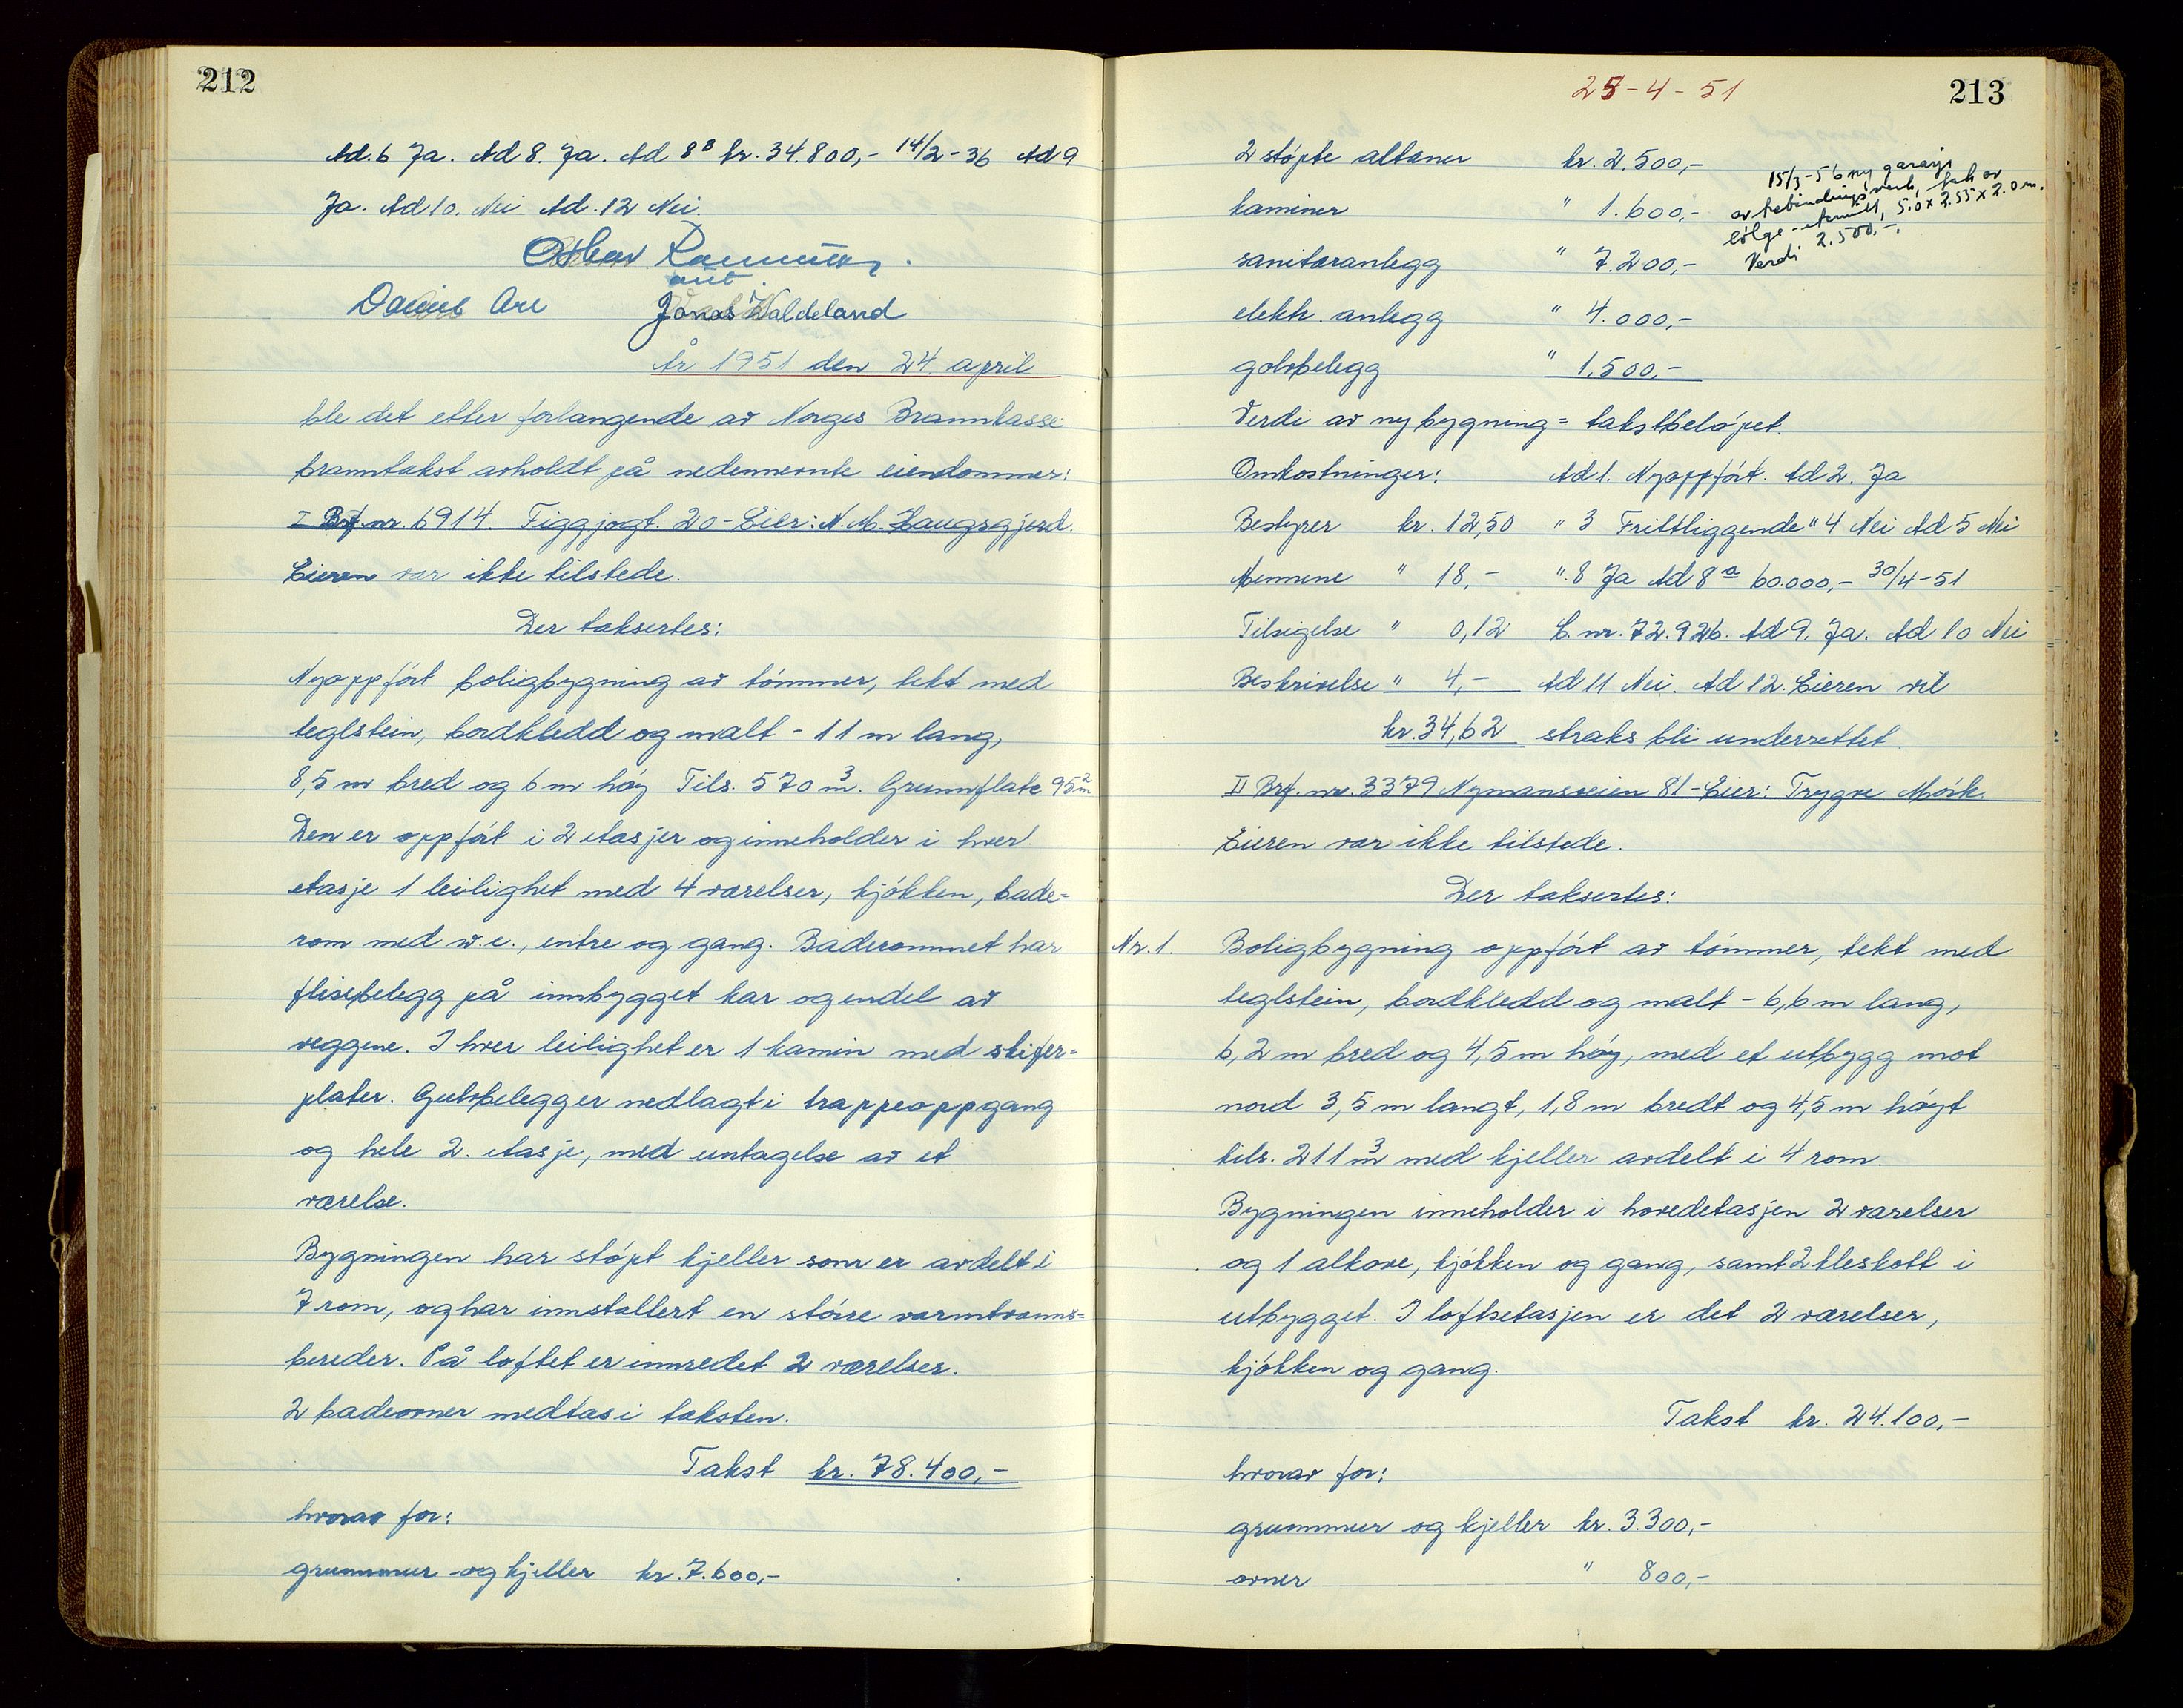 212
Ad. 6 Ja. Ad 8. Ja. Ad 8ᴮ kr. 34.800,- 14/2-36 Ad 9
Ja. Ad 10. Nei Ad. 12 Nei.
Jonas Waldeland
År 1951 den 24. april
ble det etter forlangende av Norges Brannkasse
branntakst avholdt på nedennevnte eiendommer:
I Brf. nr. 6914. Figgjogt. 20 - Eier: N. M. Haugsgjerd.
Eieren var ikke tilstede.
Der taksertes:
Nyoppført boligbygning av tømmer, tekt med
teglstein, bordkledd og malt - 11 m lang,
8,5 m bred og 6 m høy Tils. 570 m³. Grunnflate 95 m²
Den er oppført i 2 etasjer og inneholder i hver
etasje 1 leilighet med 4 værelser, kjøkken, bade-
rom med w.c., entre og gang. Baderommet har
flisebelegg på innbygget kar og endel av
veggene. I hver leilighet er 1 kamin med skifer-
plater. Gulvbelegg er nedlagt i trappeoppgang
og hele 2. etasje, med untagelse av et
værelse.
Bygningen har støpt kjeller som er avdelt i
7 rom, og har innstallert en større varmtvanns-
bereder. På loftet er innredet 2 værelser.
2 badeovner medtas i taksten.
Takst kr. 78.400,-
hvorav for:
grunnmur og kjeller kr. 7.600,-
213
25-4-51
2 støpte altaner kr. 2.500,-
kaminer " 1.600,-
sanitæranlegg " 7.200,-
elektr. anlegg " 4.000,-
golvbelegg " 1.500,-
15/3-56 ny garasje
av bebindingsverk, tak av
bølge-eternitt, 5.0 x 2.55 x 2.0 m.
Verdi 2.500,-.
Verdi av ny bygning = takstbeløpet.
Omkostninger: Ad 1. Nyoppført. Ad 2. Ja
Bestyrer kr. 12,50 " 3 Frittliggende " 4 Nei Ad 5 Nei
Mennene " 18,- " 8 Ja Ad 8ª 60.000,- 30/4-51
Tilsigelse " 0,12 L. nr. 72.926. Ad 9. Ja. Ad 10 Nei
Beskrivelse " 4,- Ad 11 Nei. Ad 12. Eieren vil
kr. 34,62 straks bli underrettet.
II Brf. nr. 3379 Nymansveien 81 - Eier: Trygve Mørk.
Eieren var ikke tilstede.
Der taksertes:
Nr. 1. Boligbygning oppført av tømmer, tekt med
teglstein, bordkledd og malt - 6,6 m lang,
6,2 m bred og 4,5 m høy, med et utbygg mot
nord 3,5 m langt, 1,8 m bredt og 4,5 m høyt
tils. 211 m³ med kjeller avdelt i 4 rom.
Bygningen inneholder i hovedetasjen 2 værelser
og 1 alkove, kjøkken og gang, samt 2 kleskott i
utbygget. I loftsetasjen er det 2 værelser,
kjøkken og gang.
Takst kr. 24.100,-
hvorav for:
grunnmur og kjeller kr. 3.300,-
ovner " 800,-